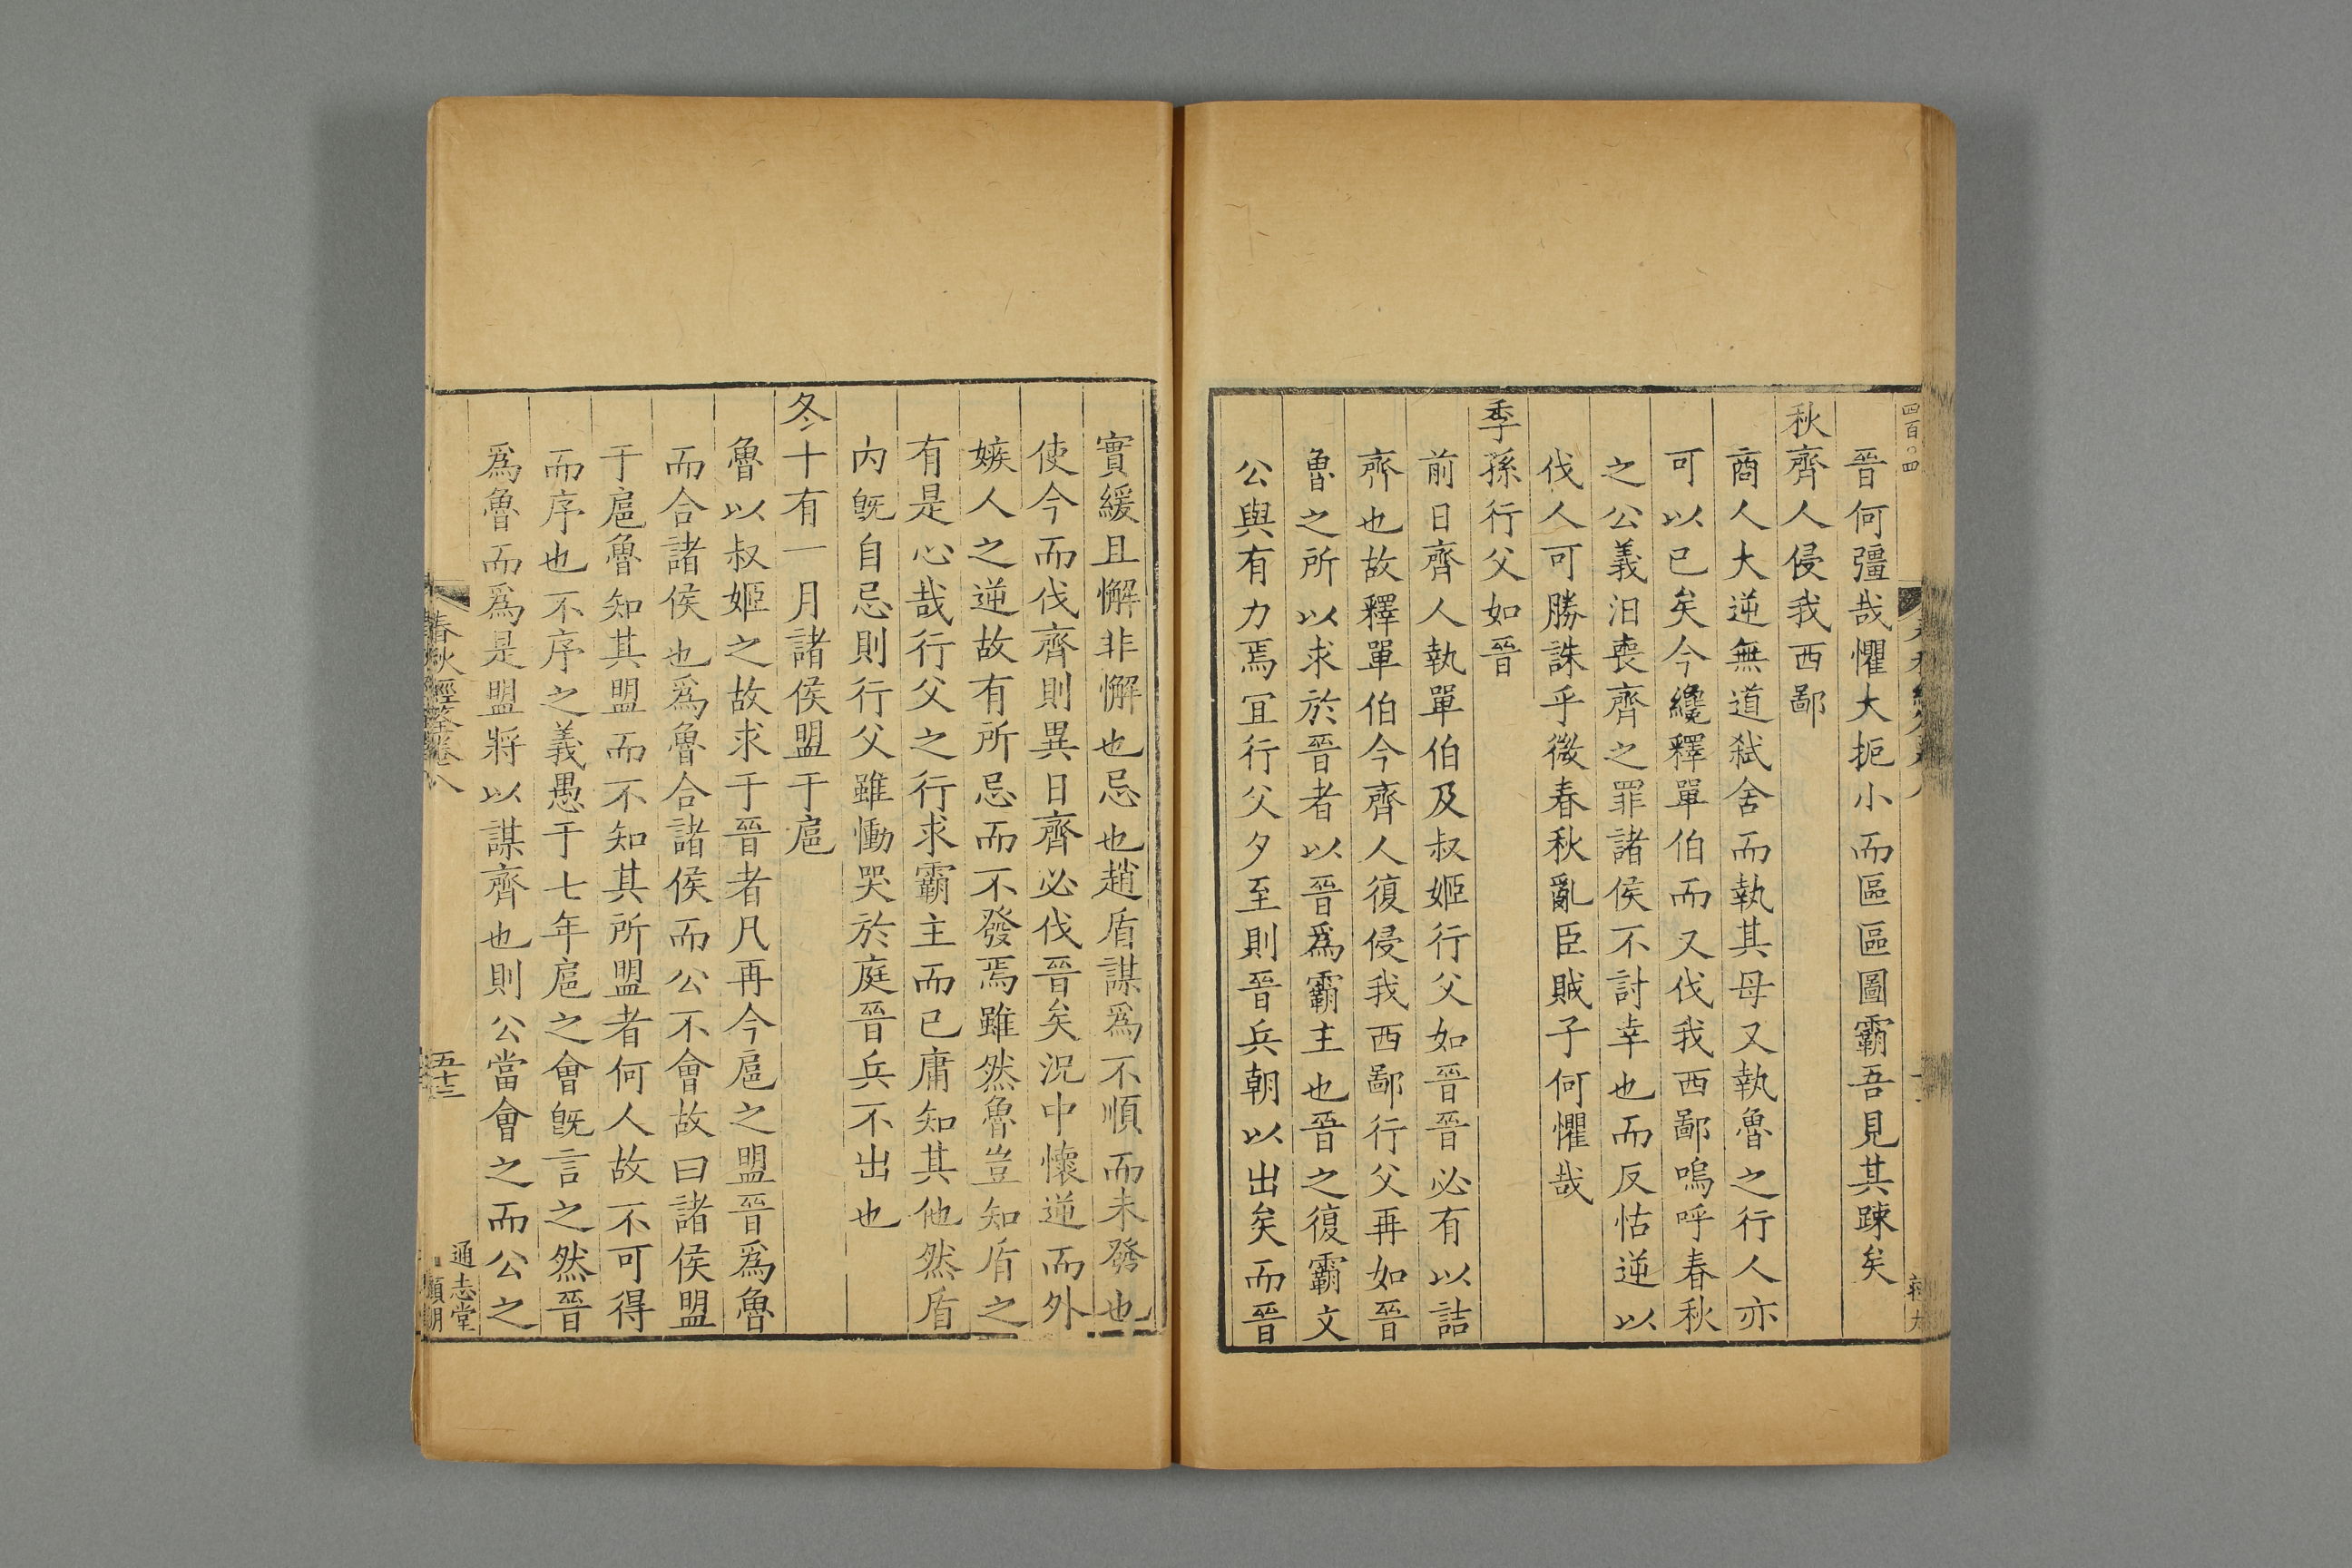 四百四
晉何彊哉懼大扼小而區區圖霸吾見其踈矣
秋齊人侵我西鄙
商人大逆無道弑舍而執其母又執魯之行人亦
可以已矣今纔釋單伯而又伐我西鄙嗚呼春秋
之公義汨喪齊之罪諸侯不討幸也而反怙逆以
伐人可勝誅乎微春秋亂臣賊子何懼哉
季孫行父如晉
前日齊人執單伯及叔姬行父如晉晉必有以詰
齊也故釋單伯今齊人復侵我西鄙行父再如晉
魯之所以求於晉者以晉爲霸主也晉之復霸文
公與有力焉宜行父夕至則晉兵朝以出矣而晉
實緩且懈非懈也忌也趙盾謀爲不順而未發也
使今而伐齊則異日齊必伐晉矣況中懷逆而外
嫉人之逆故有所忌而不發焉雖然魯豈知盾之
有是心哉行父之行求霸主而已庸知其他然盾
内旣自忌則行父雖慟哭於庭晉兵不出也
冬十有一月諸侯盟于扈
魯以叔姬之故求于晉者凡再今扈之盟晉爲魯
而合諸侯也爲魯合諸侯而公不會故曰諸侯盟
于扈魯知其盟而不知其所盟者何人故不可得
而序也不序之義愚于七年扈之會旣言之然晉
爲魯而爲是盟將以謀齊也則公當會之而公之
春秋經筌卷八
五十三
通志堂